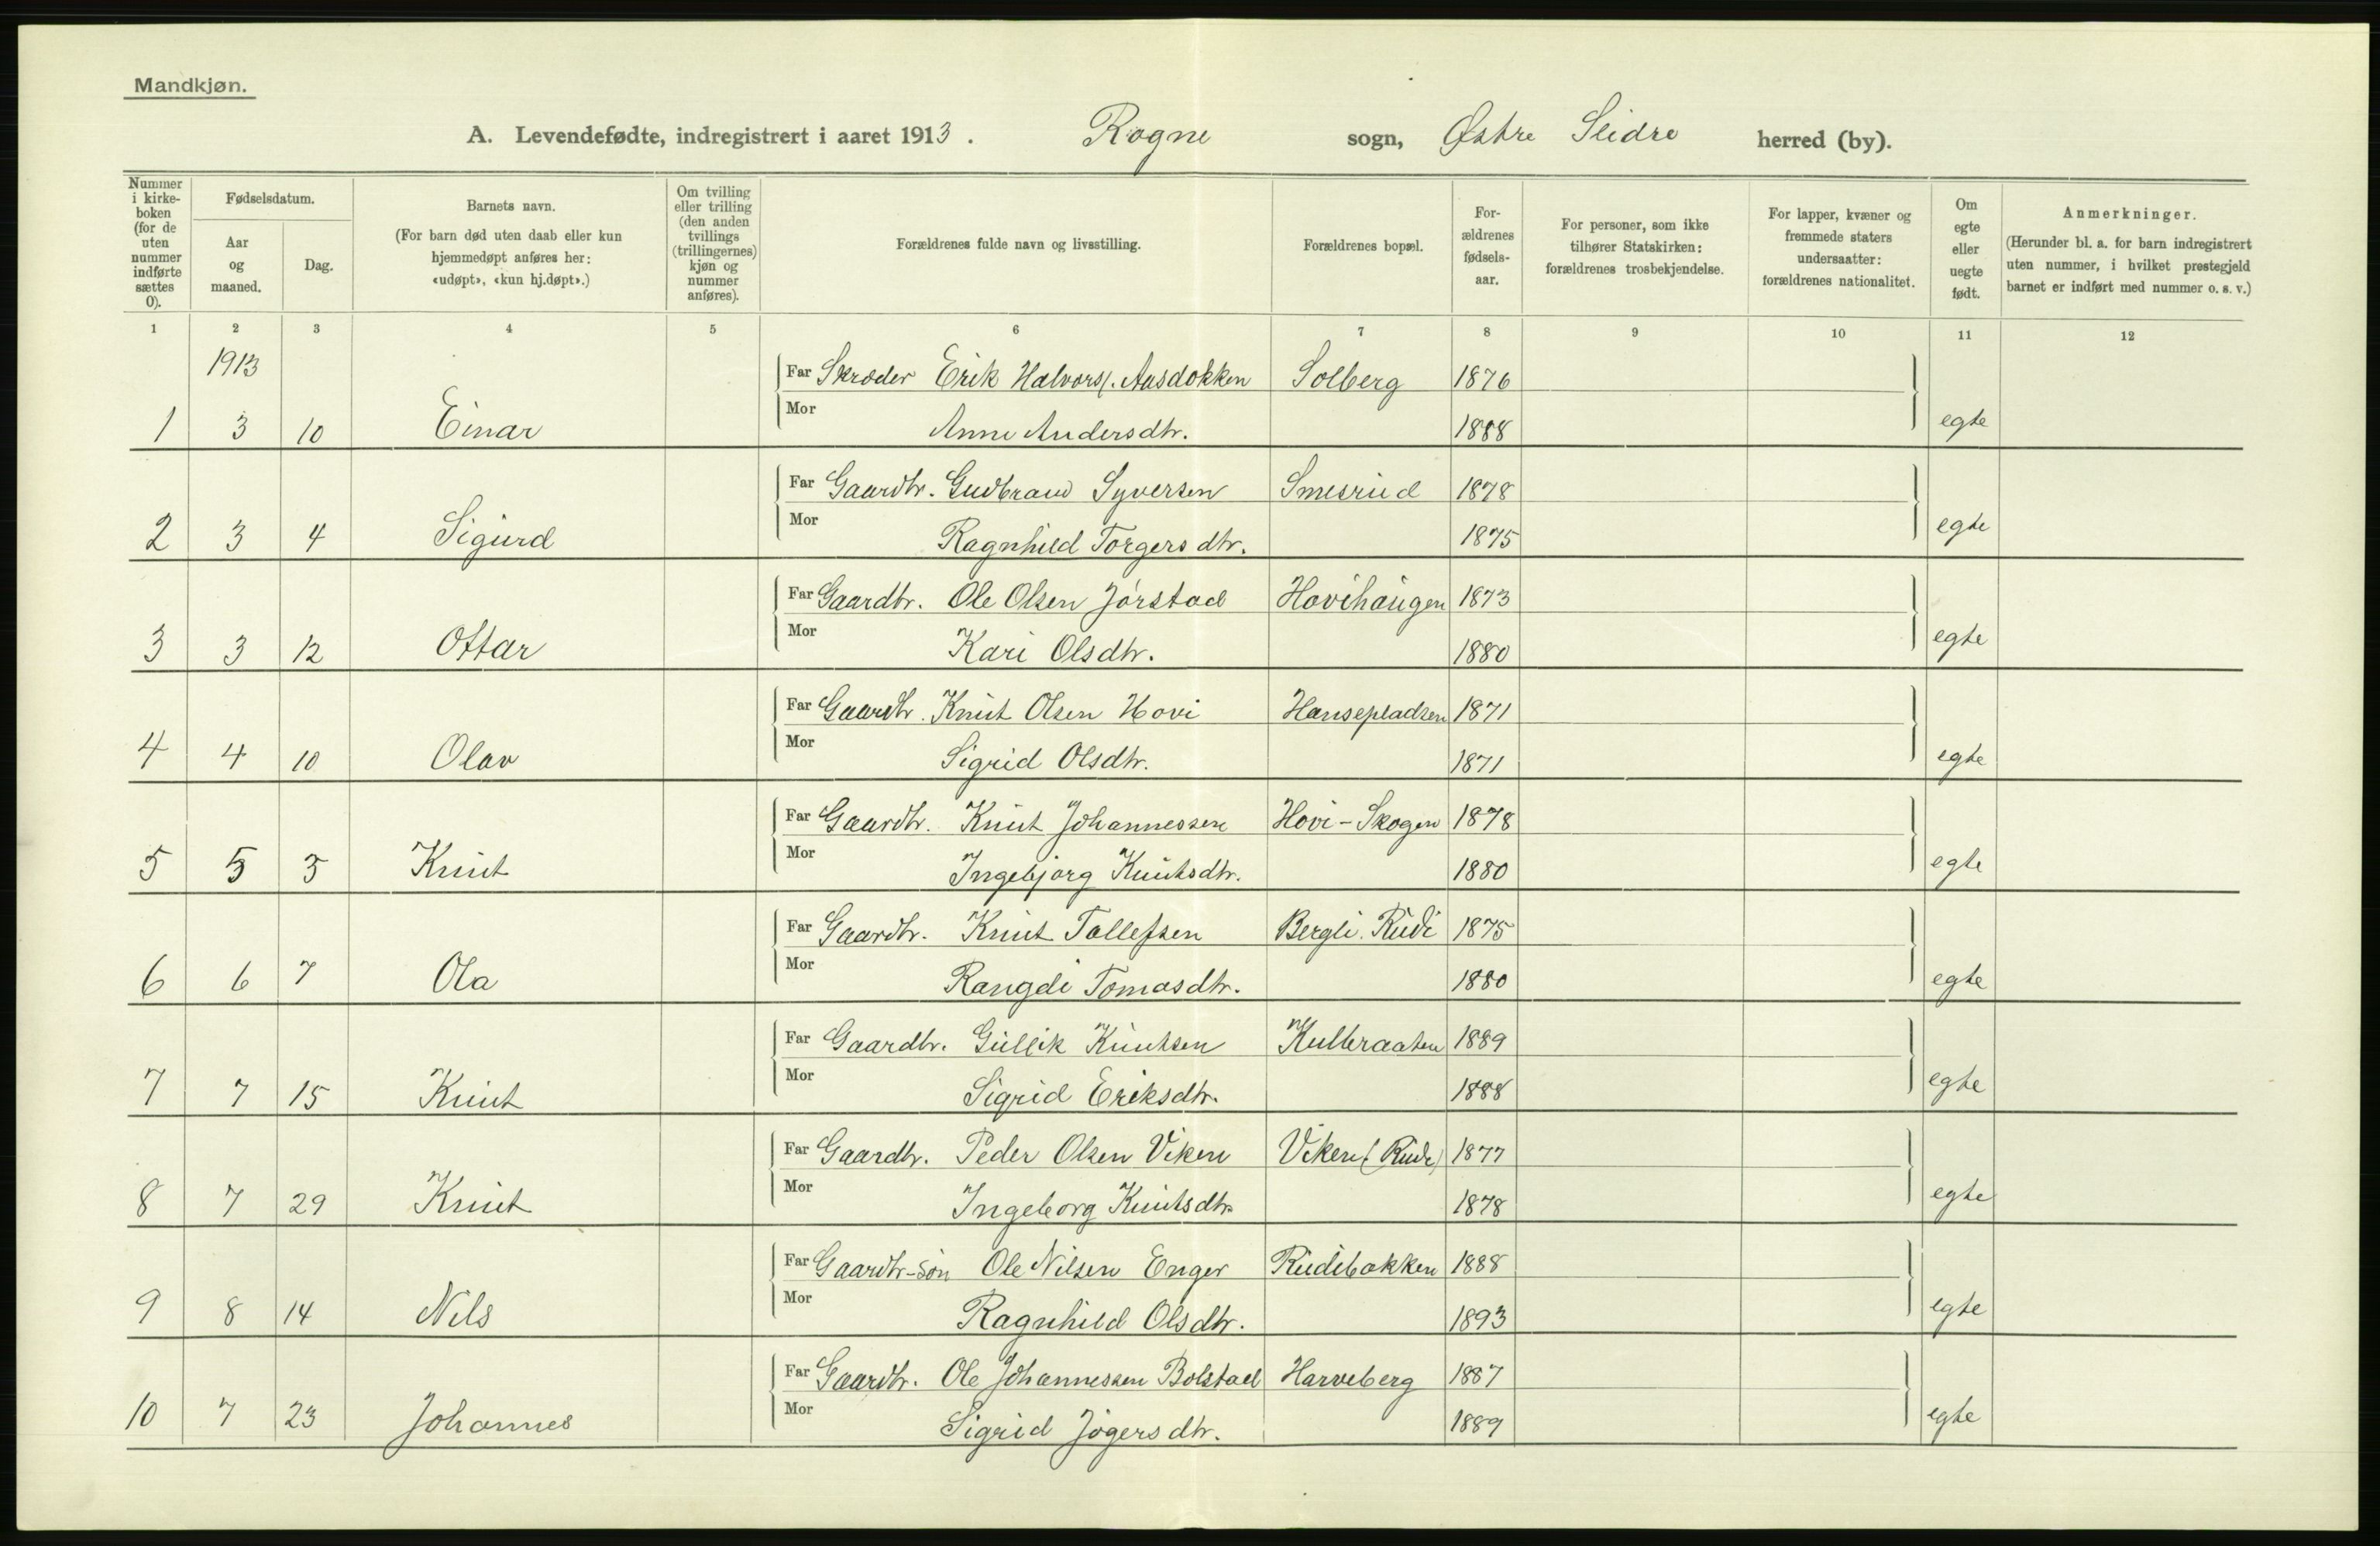 Mandkjøn.
A. Levendefødte, indregistrert i aaret 1913. Rogne sogn, Østre Slidre herred (by).
Nummer i kirke-boken (for de uten nummer indførte sættes 0).
Fødselsdatum.
Aar og maaned.
Dag.
Barnets navn.
(For barn død uten daab eller kun hjemmedøpt anføres her: «udøpt», «kun hj.døpt».)
Om tvilling eller trilling (den anden tvillings (trillingernes) kjøn og nummer anføres).
Forældrenes fulde navn og livsstilling.
Forældrenes bopæl.
For-ældrenes fødsels-aar.
For personer, som ikke tilhører Statskirken: forældrenes trosbekjendelse.
For lapper, kvæner og fremmede staters undersaatter: forældrenes nationalitet.
Om egte eller uegte født.
Anmerkninger.
(Herunder bl. a. for barn indregistrert uten nummer, i hvilket prestegjeld barnet er indført med nummer o. s. v.)
1 2 3 4 5 6 7 8 9 10 11 12
1913
Far Skræder Erik Halvors. Aasdokken Solberg 1876
1 3 10 Einar Mor Anne Andersdtr. 1888 egte
Far Gaardbr. Gudbrand Syversen Smesrud 1878
2 3 4 Sigurd Mor Ragnhild Torgersdtr. 1875 egte
Far Gaardbr. Ole Olsen Jørstad Hovihaugen 1873
3 3 12 Ottar Mor Kari Olsdtr. 1880 egte
Far Gaardbr. Knut Olsen Hovi Hansepladsen 1871
4 4 10 Olav Mor Sigrid Olsdtr. 1871 egte
Far Gaardbr. Knut Johannessen Hovi-Skogen 1878
5 5 3 Knut Mor Ingebjørg Knutsdtr. 1880 egte
Far Gaardbr. Knut Tollefsen Bergli. Rudi 1875
6 6 7 Ola Mor Rangdi Tomasdtr. 1880 egte
Far Gaardbr. Gullik Knutsen Kulbraaten 1889
7 7 15 Knut Mor Sigrid Eriksdtr. 1888 egte
Far Gaardbr. Peder Olsen Viken Viken (Rudi) 1877
8 7 29 Knut Mor Ingeborg Knutsdtr. 1878 egte
Far Gaardbr-søn Ole Nilsen Enger Rudibakken 1888
9 8 14 Nils Mor Ragnhild Olsdtr. 1893 egte
Far Gaardbr. Ole Johannessen Bolstad Harveberg 1887
10 7 23 Johannes Mor Sigrid Jøgersdtr. 1889 egte